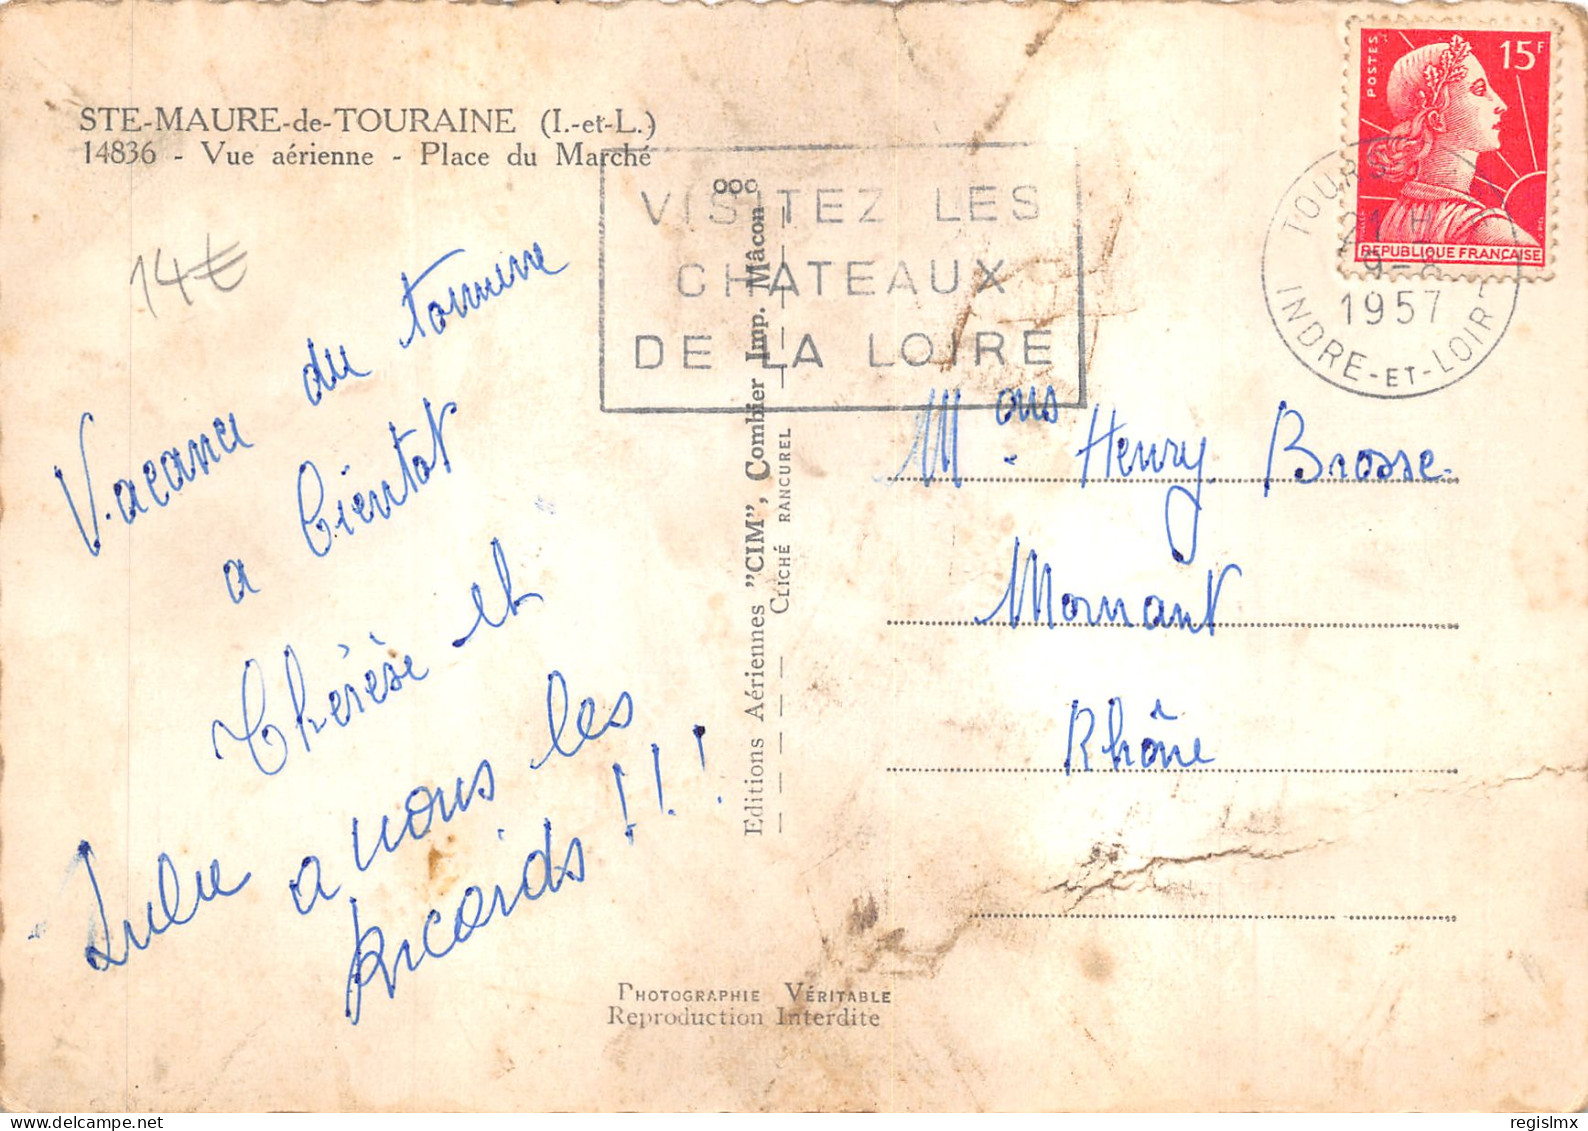 STE-MAURE-de-TOURAINE (I.-et-L.)
14836 - Vue aérienne - Place du Marché
14€
Vacance du
a bientot
Thérèse et
Lulu a nous les
Ricards !!!
VISITEZ LES
CHATEAUX
DE LA LOIRE
Editions Aériennes "CIM", Combier Imp. Mâcon
CLICHÉ RANCUREL
POSTES
15F
REPUBLIQUE FRANÇAISE
TOURS
21 H
9-8
1957
INDRE-ET-LOIRE
Henry Brosse
Mornant
Rhône
PHOTOGRAPHIE VÉRITABLE
Reproduction Interdite
regislmx